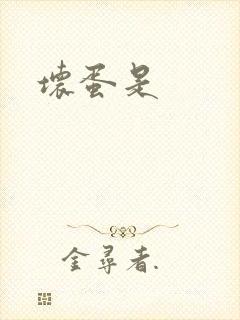 壞蛋是
金尋者.